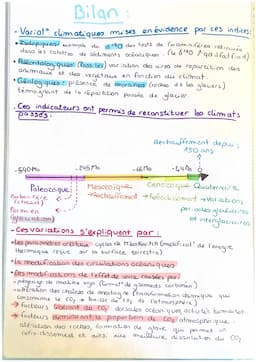 Bilan :
• Variat° climatiques mises en évidence par ces indices:
• Isotopiques: exemple du δ18O des tests de foraminifères retrouvés
dans les carottes de sédiments océaniques
• Paléontologiques (fossiles): variation des aires de répartition des
animaux et des végétaux en fonction du climat.
• Géologiques: présence de moraines (roches des glaciers)
témoignant de la répartition passée de glacier.
• Ces indicateurs ont permis de reconstituer les climats
passés:
Réchauffement depuis
150 ans
-540Ma -245 Ma -66 Ma 0
Paléozoïque Mésozoïque Cénozoïque Quaternaire
Carbonifère
(chaud) → Réchauffement → Refroidissement → variations
Permien périodes glaciaires
(glaciation) et interglaciaires
• Ces variations s'expliquent par :
• Les paramètres orbitaux cycles de Milankovitch (modificat° de l'énergie
thermique reçue sur la surface terrestre)
• la modification des circulations océaniques
• Des modifications de l'effet de serre causées par:
→ piégeage de matière orga (format° de gisements carbonés)
→ altération des chaînes de montagne (transformation chimique qui
consomme le CO2 → baisse de CO2 de l'atmosphère)
→ facteurs libérant du CO2: dorsales océaniques, activités humaines
→ facteurs diminuant la proportion de CO2 atmosphérique:
altération des roches, formation de glace qui permet un
refroidissement et ainsi une meilleure dissolution du CO2